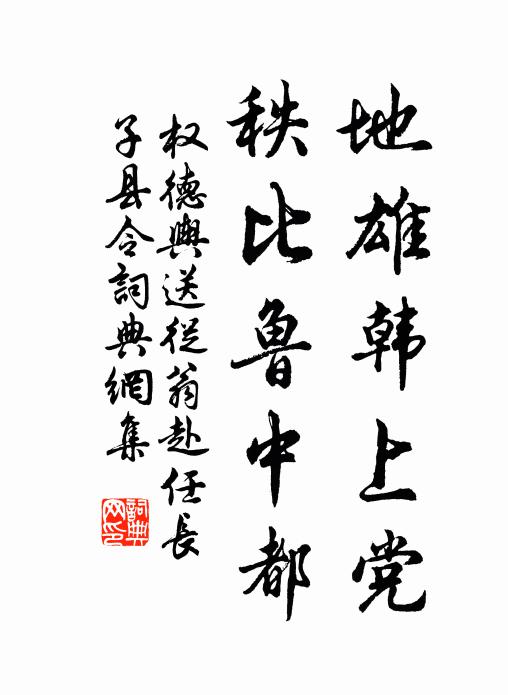 地雄韩上党
秩比鲁中都
权德舆送從翁赴任長
子县令詞典網集
詞典
网印